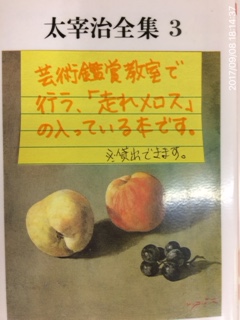 太宰治全集 3
芸術鑑賞教室で
行う、「走れメロス」
の入っている本です。
※貸出できます。
2017/09/08 18:14:37